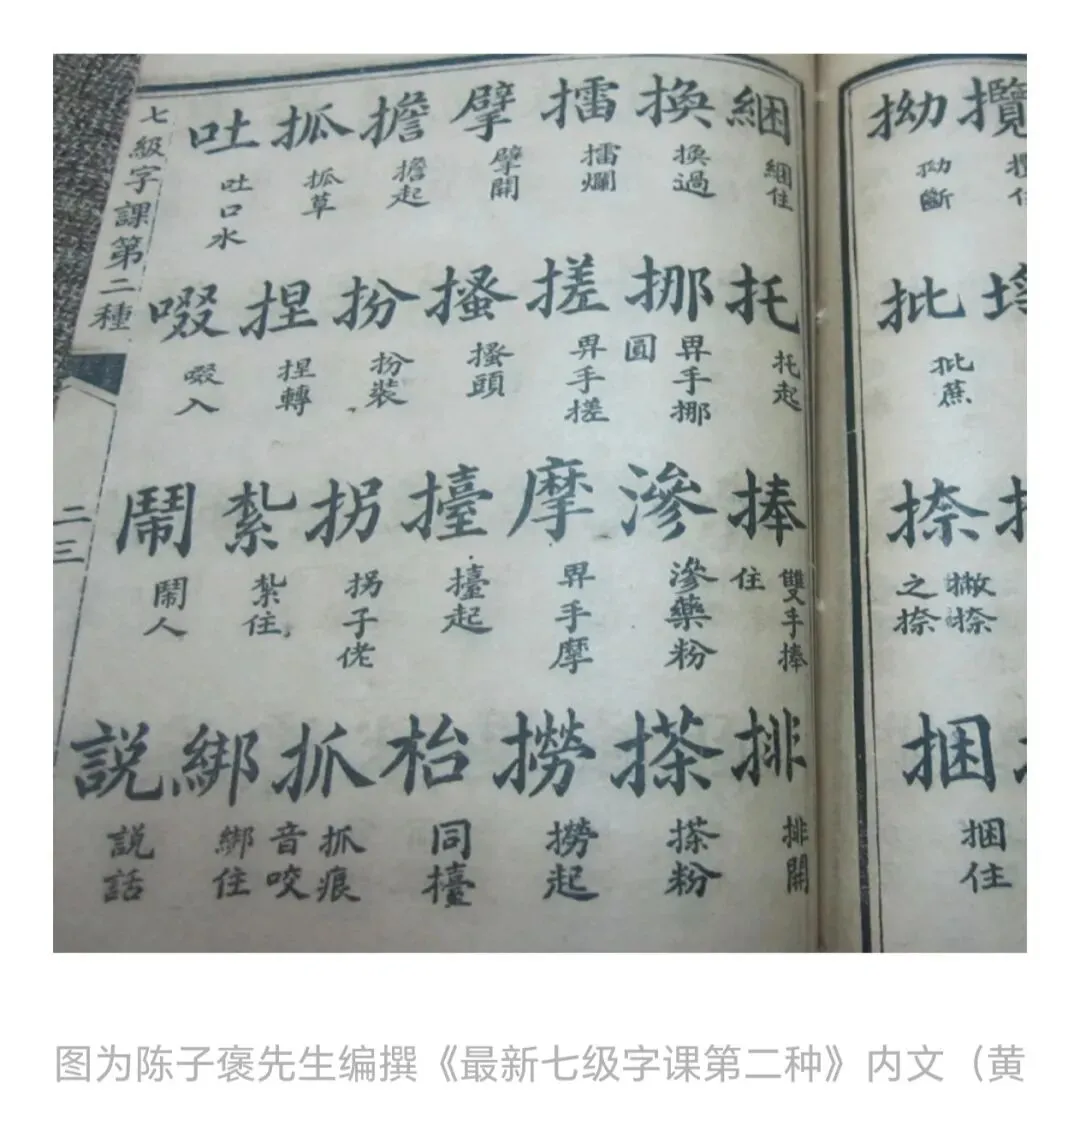 攬
拗
拗斷
批
批蔗
捺
撇捺
之捺
捆
捆住
綑
綑住
托
托起
捧
雙手捧
住
排
排開
換
換過
挪
畀手挪
圓
滲
滲藥粉
搽
搽粉
擂
擂爛
搓
畀手搓
摩
畀手摩
撈
撈起
擘
擘開
搔
搔頭
擡
擡起
枱
同擡
擔
擔起
扮
扮裝
拐
拐子佬
抓
抓痕
音咬
㧓
㧓草
捏
捏轉
紮
紮住
綁
綁住
吐
吐口水
啜
啜入
鬧
鬧人
説
説話
七級字課第二種
二三
图为陈子褒先生编撰《最新七级字课第二种》内文（黄